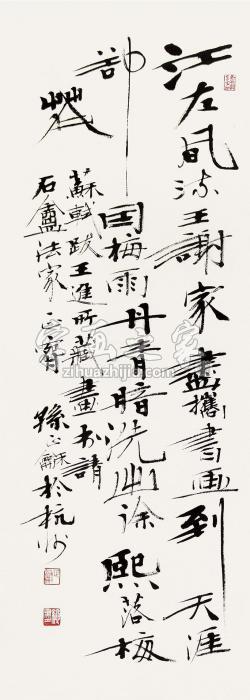 江左風流王謝家盡攜書画到天涯
卻因梅雨丹青暗洗出徐熙落梅
花
蘇軾跋王進所藏畫請
石盦法家正 孫正龢於杭州
zihuazhijia.com